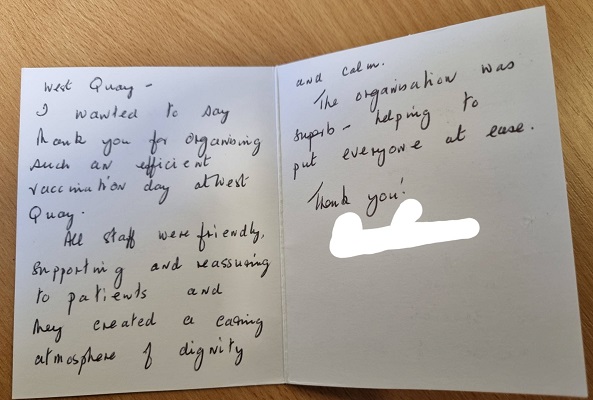 West Quay -
I wanted to say
thank you for organising
such an efficient
vaccination day at West
Quay.
All staff were friendly,
supporting and reassuring
to patients and
they created a caring
atmosphere of dignity
and calm.
The organisation was
superb - helping to
put everyone at ease.
Thank you!